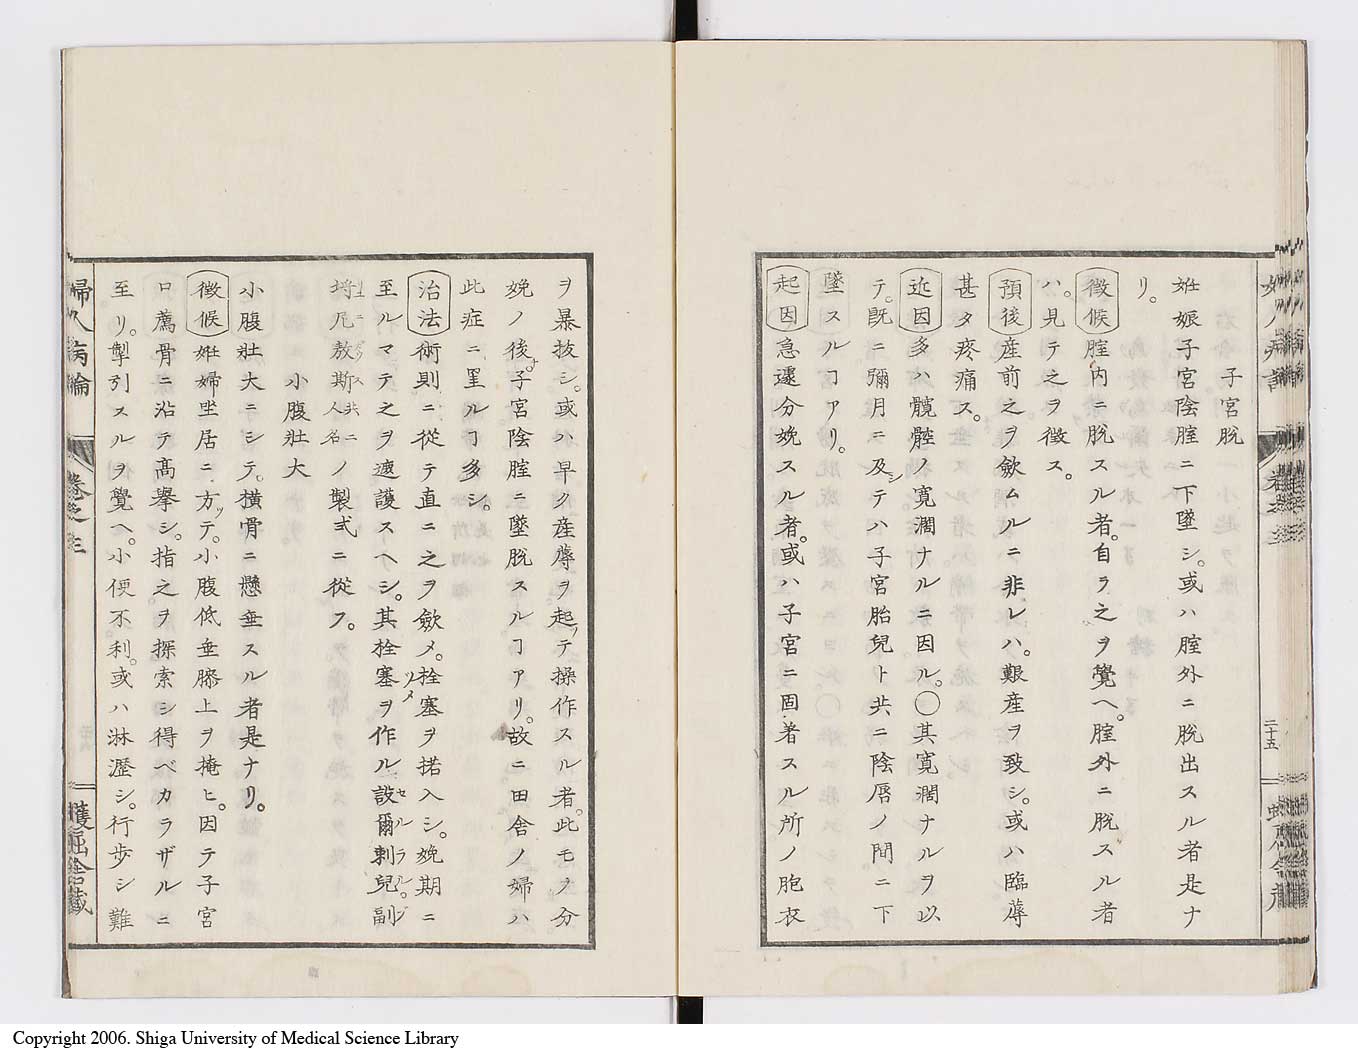 子宮脱
姙娠子宮陰腟ニ下墜シ。或ハ腟外ニ脱出スル者是ナ
リ。
徴候 腟内ニ脱スル者。自ラ之ヲ覺ヘ。腟外ニ脱スル者
ハ。見テ之ヲ徴ス。
預後 産前之ヲ歛ムルニ非レハ。艱産ヲ致シ。或ハ臨蓐
甚タ疼痛ス。
近因 多ハ髖體ノ寛濶ナルニ因ル。〇其寛濶ナルヲ以
テ。既ニ彌月ニ及シテハ子宮胎兒ト共ニ陰唇ノ間ニ下
墜スルヿアリ。
起因 急遽分娩スル者。或ハ子宮ニ固着スル所ノ胞衣
二十五
ヲ暴抜シ。或ハ早ク産蓐ヲ起ツテ操作スル者。此モノ分
娩ノ後チ子宮陰腟ニ墜脱スルヿアリ。故ニ田舎ノ婦ハ
此症ニ罹ルヿ多シ。
治法 術則ニ從テ直ニ之ヲ歛メ。拴塞ヲ揞入シ。娩期ニ
至ルマテ之ヲ遮護スヘシ。其拴塞ヲ作ル設爾剌兒。副
埒凡敖斯共ニ人名ノ製式ニ從フ。
小腹壯大
小腹壯大ニシテ。横骨ニ懸垂スル者是ナリ。
徴候 姙婦坐居ニ方ツテ。小腹低垂膝上ヲ掩ヒ。因テ子宮
口薦骨ニ沿テ高擧シ。指之ヲ探索シ得ベカラザルニ
至リ。掣引スルヲ覺ヘ。小便不利。或ハ淋瀝シ。行歩シ難
婦人病論
卷之三